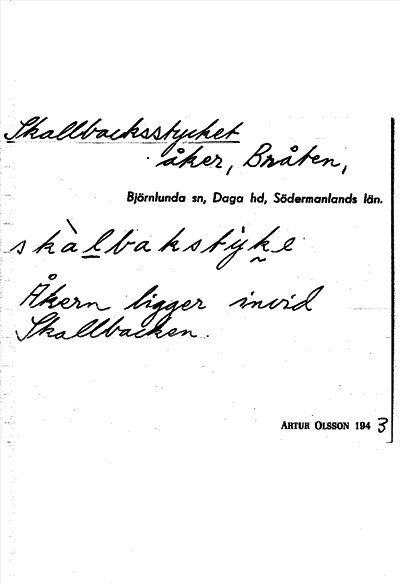 Skallbacksstycket
åker, Bråten,
Björnlunda sn, Daga hd, Södermanlands län.
skàlbakstỳke
Åkern ligger invid
Skallbacken.
ARTUR OLSSON 1943